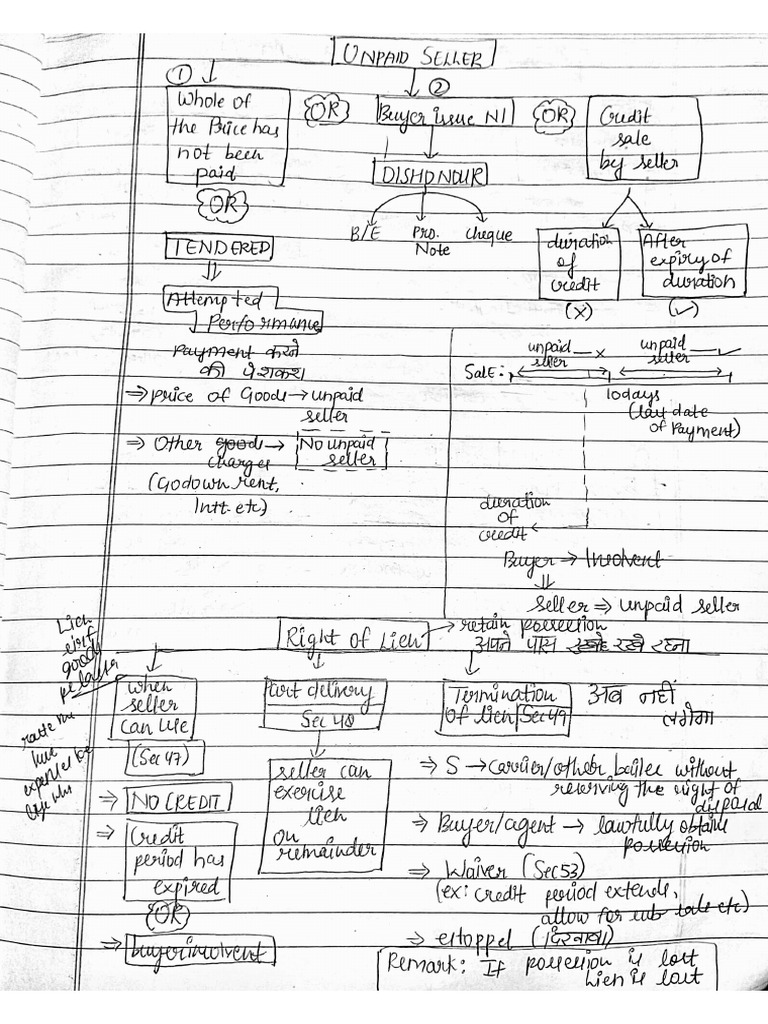 UNPAID SELLER
①
②
Whole of
the Price has
not been
paid
OR
Buyer issue NI
OR
Credit
sale
by seller
DISHONOUR
OR
B/E
Pro.
Note
cheque
TENDERED
duration
of
credit
(x)
After
expiry of
duration
(✓)
Attempted
Performance
Payment करने
की पेशकश
⇒ price of Goods → unpaid
seller
⇒ Other goods → No unpaid
charges seller
(Godown rent,
Intt. etc)
unpaid
seller x
unpaid
seller ✓
Sale:
10days
(last date
of Payment)
duration
of
credit
Buyer → Insolvent
⇓
Seller ⇒ unpaid seller
Right of Lien → retain possession
अपने पास रखे रहना
Lien
goods
when
seller
can use
(Sec 47)
⇒ NO CREDIT
⇒ Credit
period has
expired
OR
⇒ buyer insolvent
Part delivery
Sec 48
seller can
exercise
lien
on
remainder
Termination
of lien Sec 49
अब नहीं
लगेगा
⇒ S → Carrier/other bailee without
reserving the right of
disposal
⇒ Buyer/agent → lawfully obtains
possession
⇒ Waiver (Sec 53)
(ex: credit period extends,
allow for sub sale etc)
⇒ estoppel (दिखावा)
Remark: If possession is lost
Lien is lost